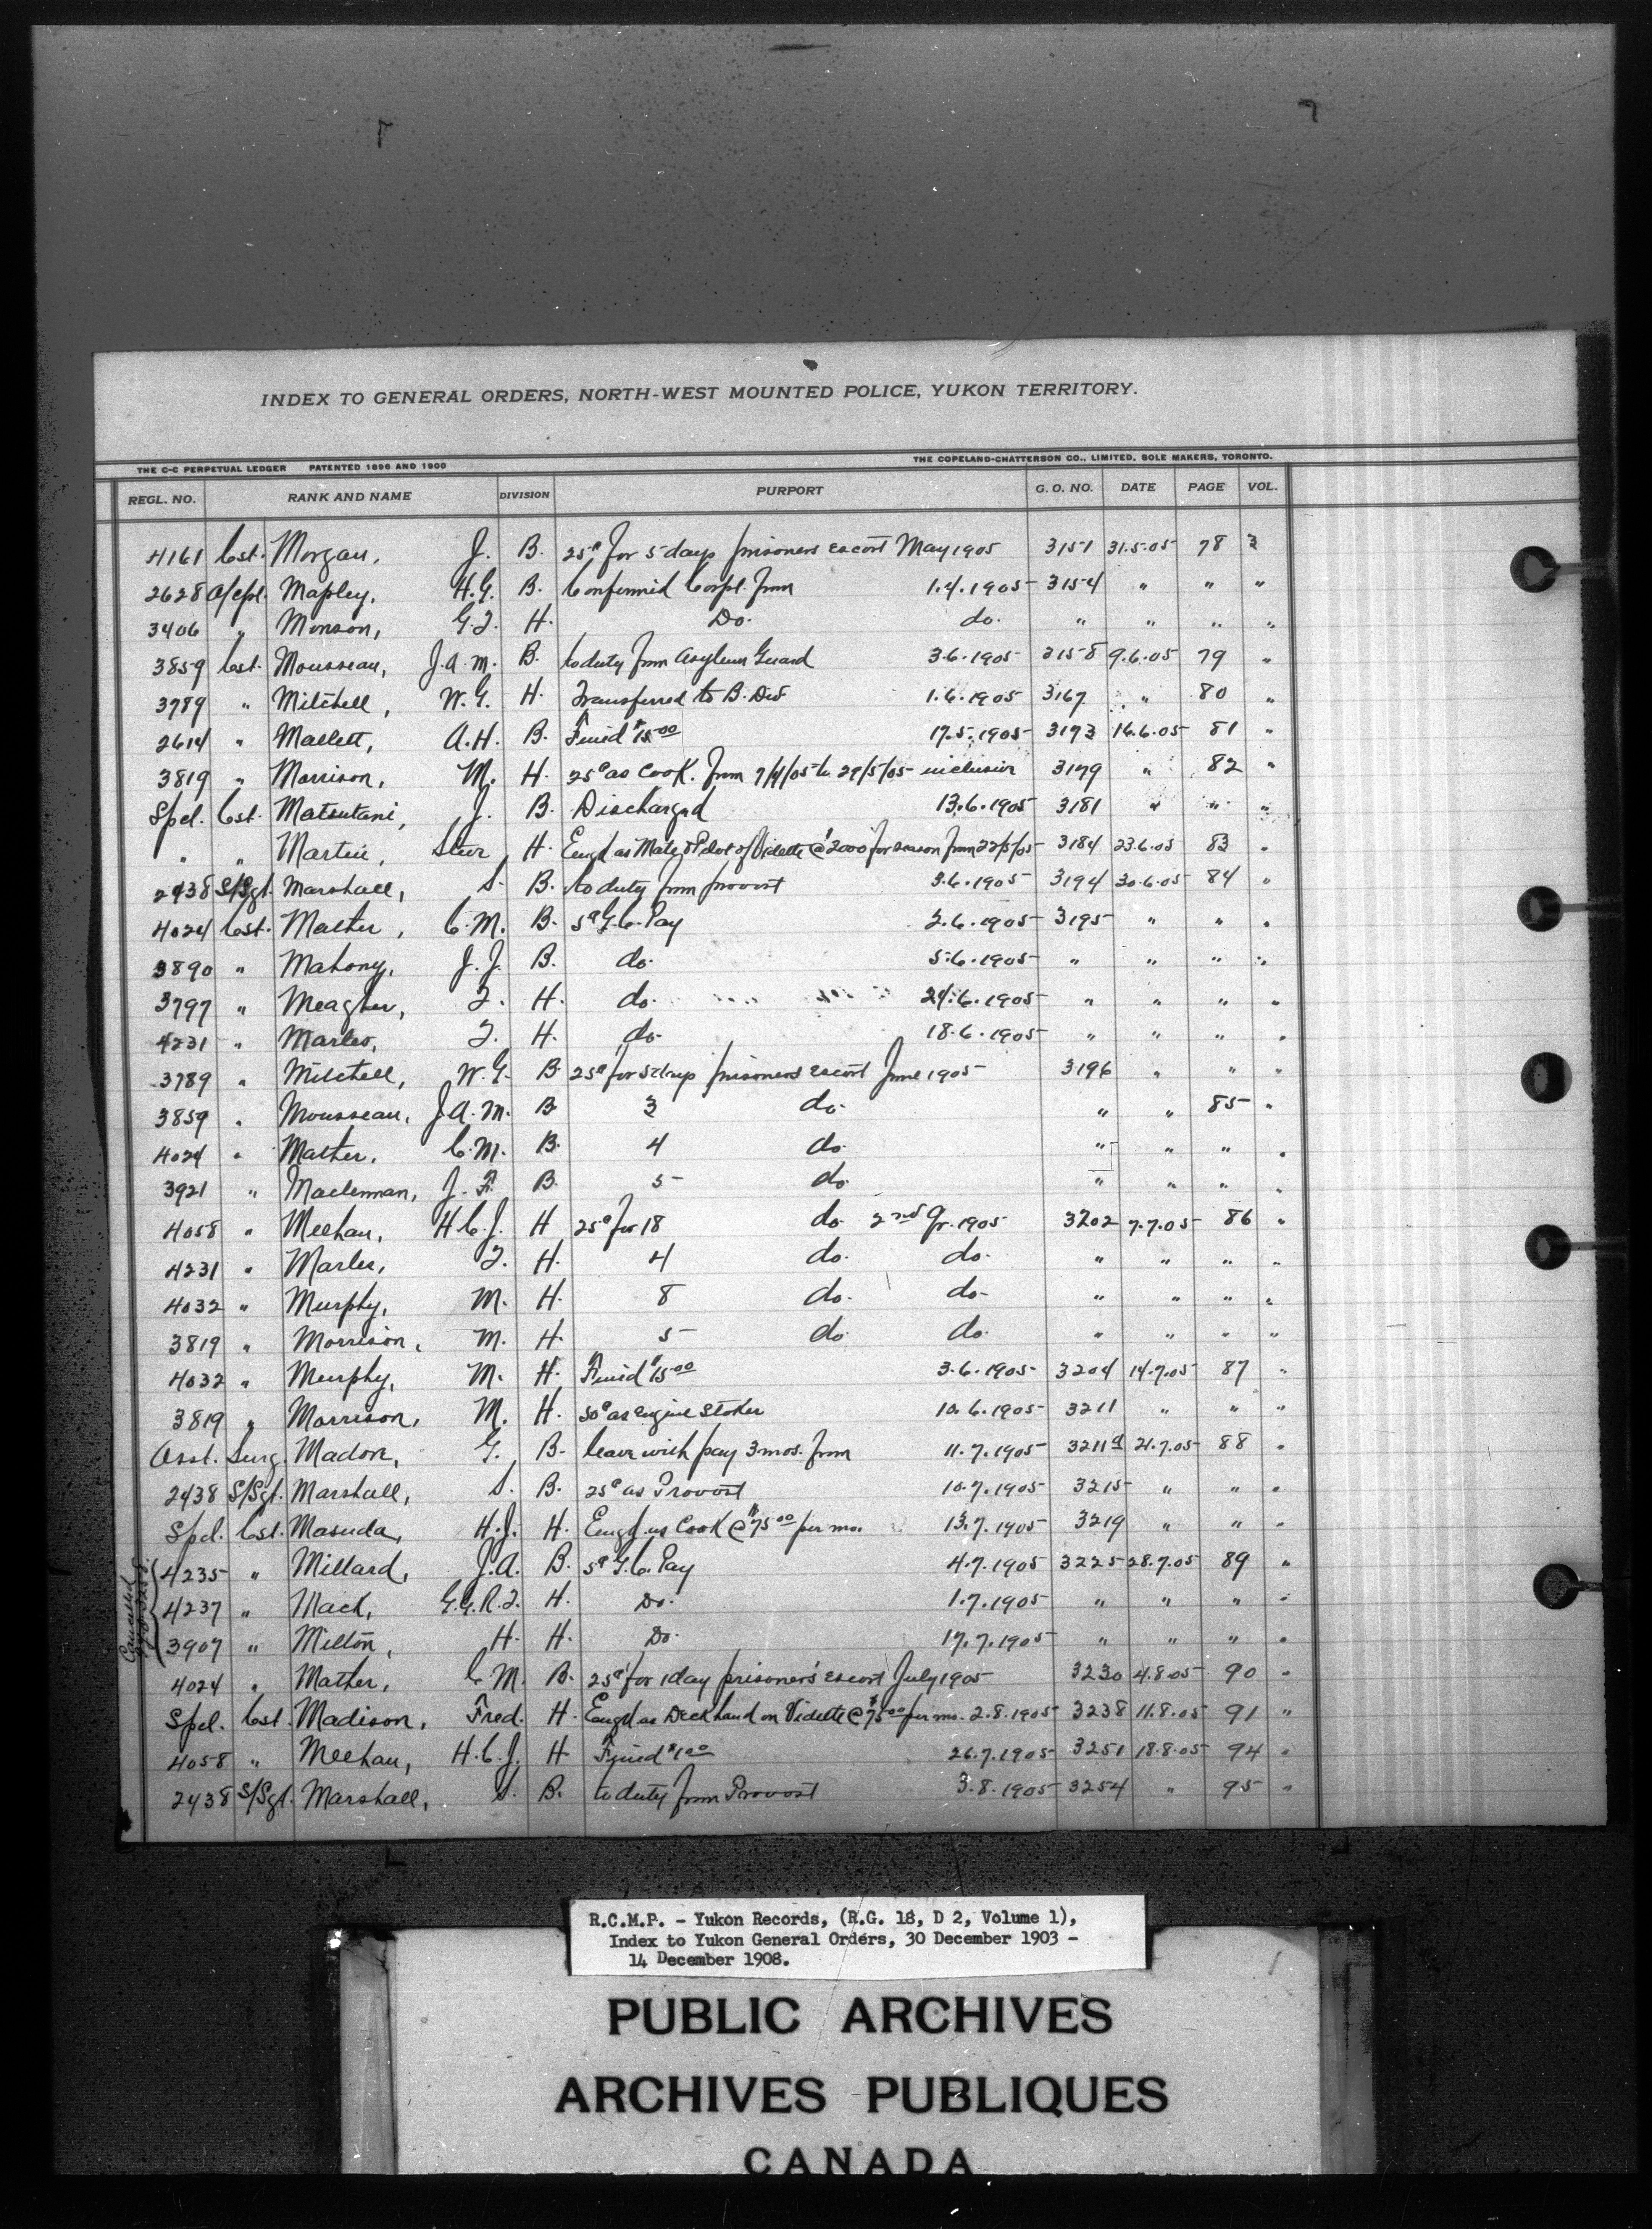 INDEX TO GENERAL ORDERS, NORTH-WEST MOUNTED POLICE, YUKON TERRITORY.
THE C-C PERPETUAL LEDGER PATENTED 1896 AND 1900 THE COPELAND-CHATTERSON CO., LIMITED, SOLE MAKERS, TORONTO.
REGL. NO. RANK AND NAME DIVISION PURPORT G. O. NO. DATE PAGE VOL.
4161 Cst. Morgan, J. B. 25¢ for 5 days prisoners escort May 1905 3151 31.5.05 78 3
2628 a/Cpl. Mapley, H.G. B. Confirmed Corpl. from 1.4.1905 3154 " " "
3406 " Monson, G.F. H. Do. do. " " " "
3859 Cst. Mousseau, J.A.M. B. to duty from Asylum Guard 3.6.1905 3158 9.6.05 79 "
3789 " Mitchell, W.G. H. Transferred to B. Div 1.6.1905 3167 " 80 "
2614 " Mallett, A.H. B. Fined $15.00 17.5.1905 3173 16.6.05 81 "
3819 " Morrison, M. H. 25¢ as Cook. from 7/4/05 to 29/5/05 inclusive 3179 " 82 "
Spcl. Cst. Matsutani, J. B. Discharged 13.6.1905 3181 " " "
" " Martin, H. Engd as Mate & Pilot of Vidette @ $2000 for season from 22/5/05 3184 23.6.05 83 "
2438 S/Sgt. Marshall, S. B. to duty from provost 3.6.1905 3194 30.6.05 84 "
4024 Cst. Mather, C.M. B. 5¢ G.C. Pay 2.6.1905 3195 " " "
3890 " Mahony, J.J. B. do. 5.6.1905 " " " "
3797 " Meagher, F. H. do. 24.6.1905 " " " "
4231 " Marles, F. H. do. 18.6.1905 " " " "
3789 " Mitchell, W.G. B. 25¢ for 5 days prisoners escort June 1905 3196 " " "
3859 " Mousseau, J.A.M. B 3 do. " " 85 "
4024 " Mather, C.M. B. 4 do. " " " "
3921 " Maclennan, J.F. B. 5 do. " " " "
4058 " Meehan, H.C.J. H 25¢ for 18 do. 2nd Qr. 1905 3202 7.7.05 86 "
4231 " Marles, F. H. 4 do. do. " " " "
4032 " Murphy, M. H. 8 do. do. " " " "
3819 " Morrison, M. H. 5 do. do. " " " "
4032 " Murphy, M. H. Fined $15.00 3.6.1905 3204 14.7.05 87 "
3819 " Morrison, M. H. 50¢ as engine stoker 10.6.1905 3211 " " "
Asst. Surg. Madore, G. B. leave with pay 3 mos. from 11.7.1905 3211a 21.7.05 88 "
2438 S/Sgt. Marshall, S. B. 25¢ as Provost 10.7.1905 3215 " " "
Spcl. Cst. Masuda, H.J. H. Engd as Cook @ $75.00 per mo. 13.7.1905 3219 " " "
Cancelled
4235 " Millard, J.A. B. 5¢ G.C. Pay 4.7.1905 3225 28.7.05 89 "
4237 " Mack, G.G.R.F. H. Do. 1.7.1905 " " " "
3907 " Milton, H. H. Do. 17.7.1905 " " " "
4024 " Mather, C.M. B. 25¢ for 1 day prisoners' escort July 1905 3230 4.8.05 90 "
Spcl. Cst. Madison, Fred. H. Engd as Deckhand on Vidette @ $75.00 per mo. 2.8.1905 3238 11.8.05 91 "
4058 " Meehan, H.C.J. H Fined $1.00 26.7.1905 3251 18.8.05 94 "
2438 S/Sgt. Marshall, S. B. to duty from Provost 3.8.1905 3254 " 95 "
R.C.M.P. - Yukon Records, (R.G. 18, D 2, Volume 1),
Index to Yukon General Orders, 30 December 1903 -
14 December 1908.
PUBLIC ARCHIVES
ARCHIVES PUBLIQUES
CANADA